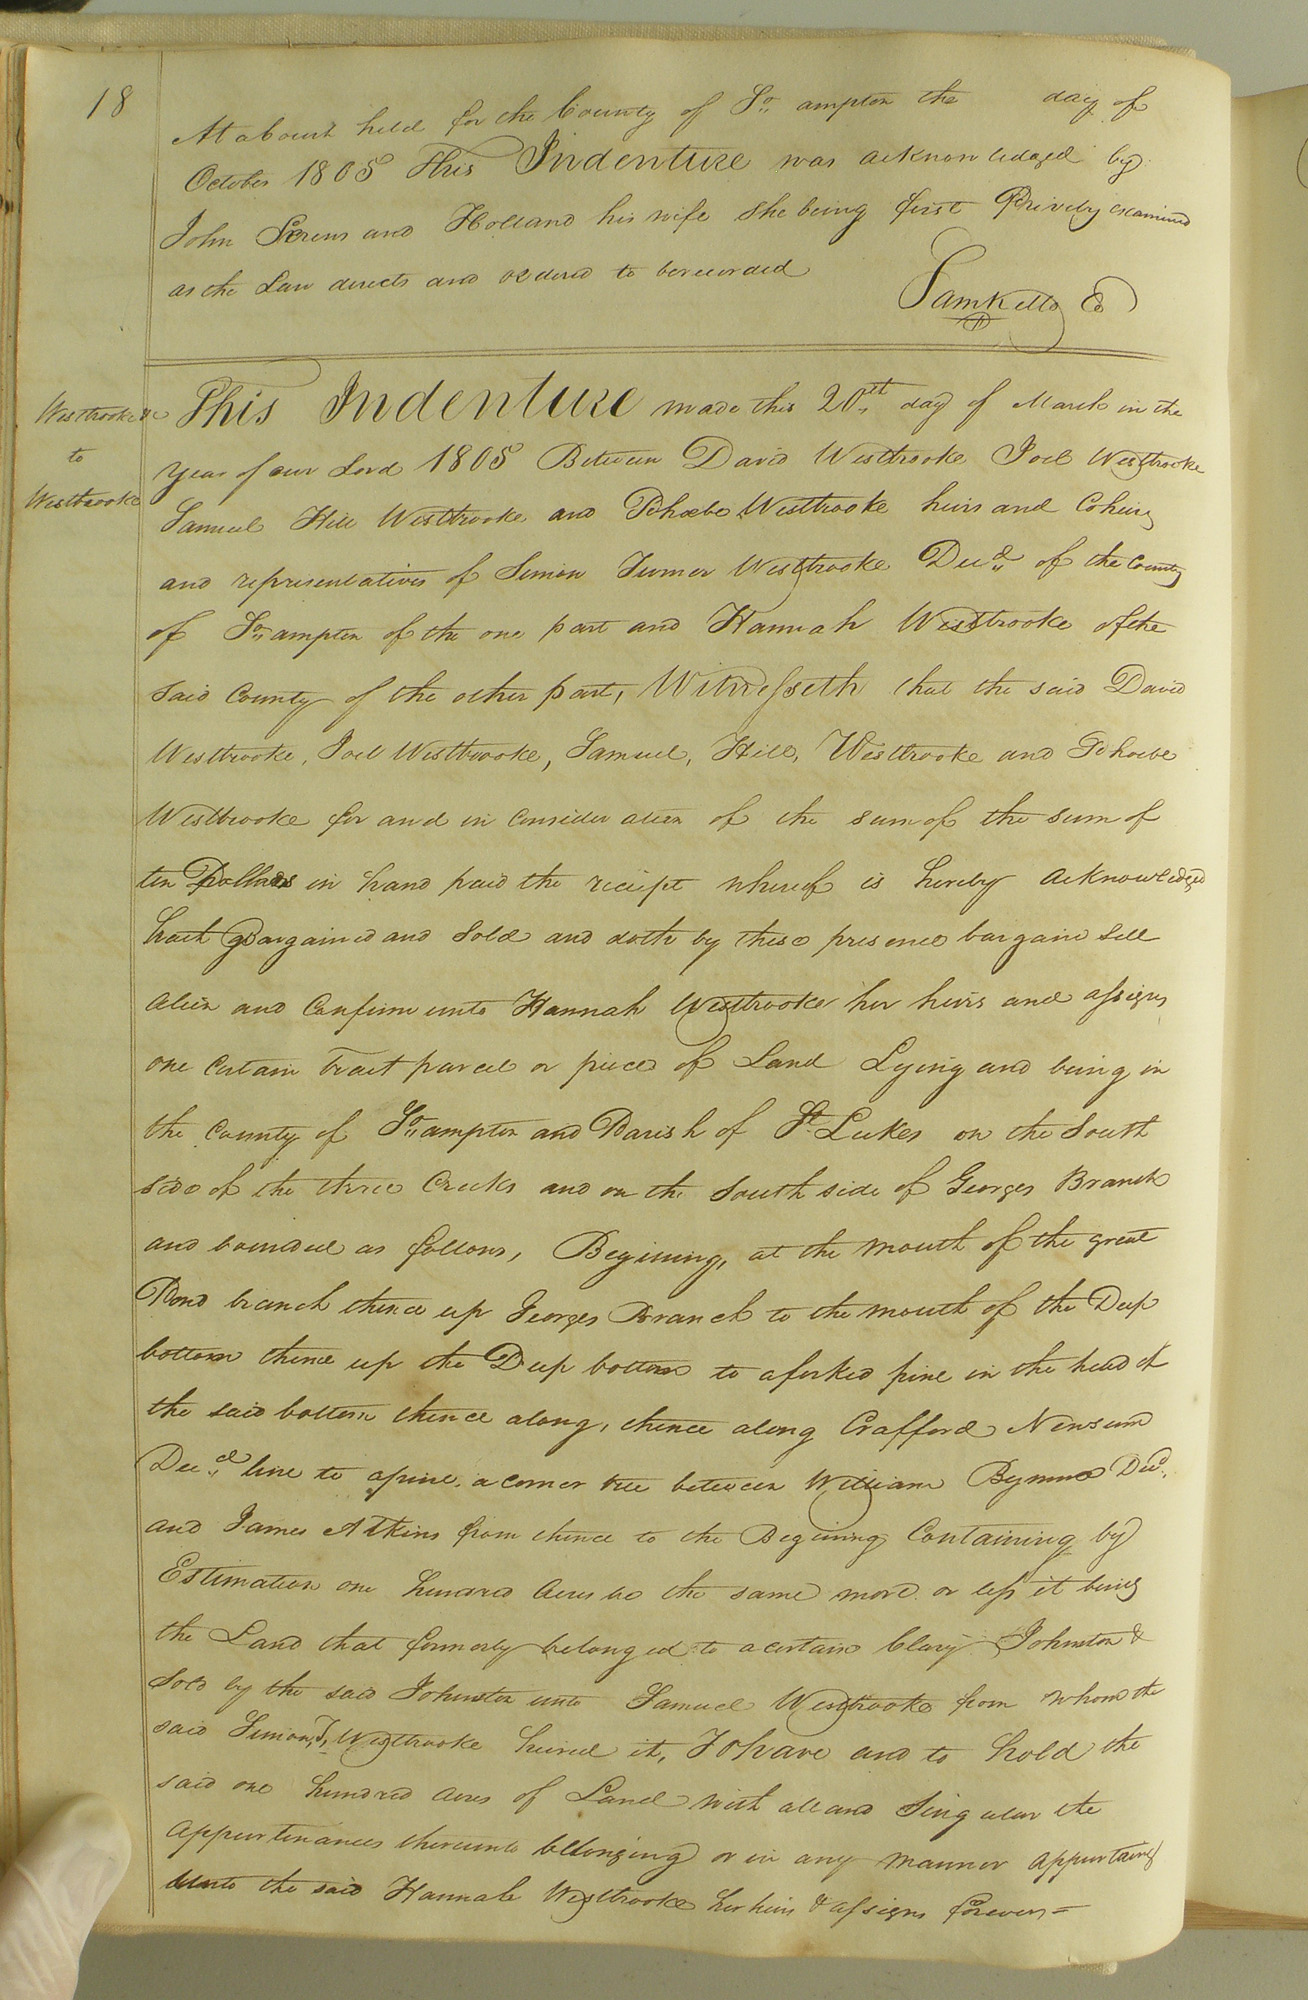 18
At a Court held for the County of So..ampton the day of
October 1805 This Indenture was acknowledged by
John Screws and Holland his wife She being first Privily examined
as the Law directs and ordered to be recorded
Sam Kello Co
Westbrooke &c
to
Westbrooke
This Indenture made this 20th day of March in the
Year of our Lord 1805 Between David Westbrooke Joel Westbrooke
Samuel Hill Westbrooke and Phoebe Westbrooke heirs and Coheirs
and representatives of Simon Turner Westbrooke Decd of the County
of So..ampton of the one part and Hannah Westbrooke of the
said County of the other part, Witnesseth that the said David
Westbrooke, Joel Westbrooke, Samuel, Hill, Westbrooke and Phoebe
Westbrooke for and in Consideration of the sum of the sum of
ten Dollars in hand paid the receipt whereof is hereby acknowledged
hath Bargained and Sold and doth by these presence bargain Sell
alien and Confirm unto Hannah Westbrooke her heirs and assigns
one Certain tract parcel or piece of Land Lying and being in
the County of So..ampton and Parish of St. Lukes on the South
side of the three Creeks and on the South side of Georges Branch
and bounded as follows, Begining, at the mouth of the great
Pond branch thence up Georges Branch to the mouth of the Deep
bottom thence up the Deep bottom to a forked pine in the head of
the said bottom thence along, thence along Crafford Newsum
Decd line to a pine, a corner tree between William Bynum Decd.
and James Atkins from thence to the Begining Containing by
Estimation one hundred Acres be the same more or less it being
the Land that formerly belonged to a certain Clary Johnston &
Sold by the said Johnston unto Samuel Westbrooke from whom the
said Simon, T, Westbrooke heired it, To have and to hold the
said one hundred Acres of Land with all and Singular the
appurtenances thereunto belonging or in any manner appurtaing
unto the said Hannah Westbrooke her heirs & assigns forever =